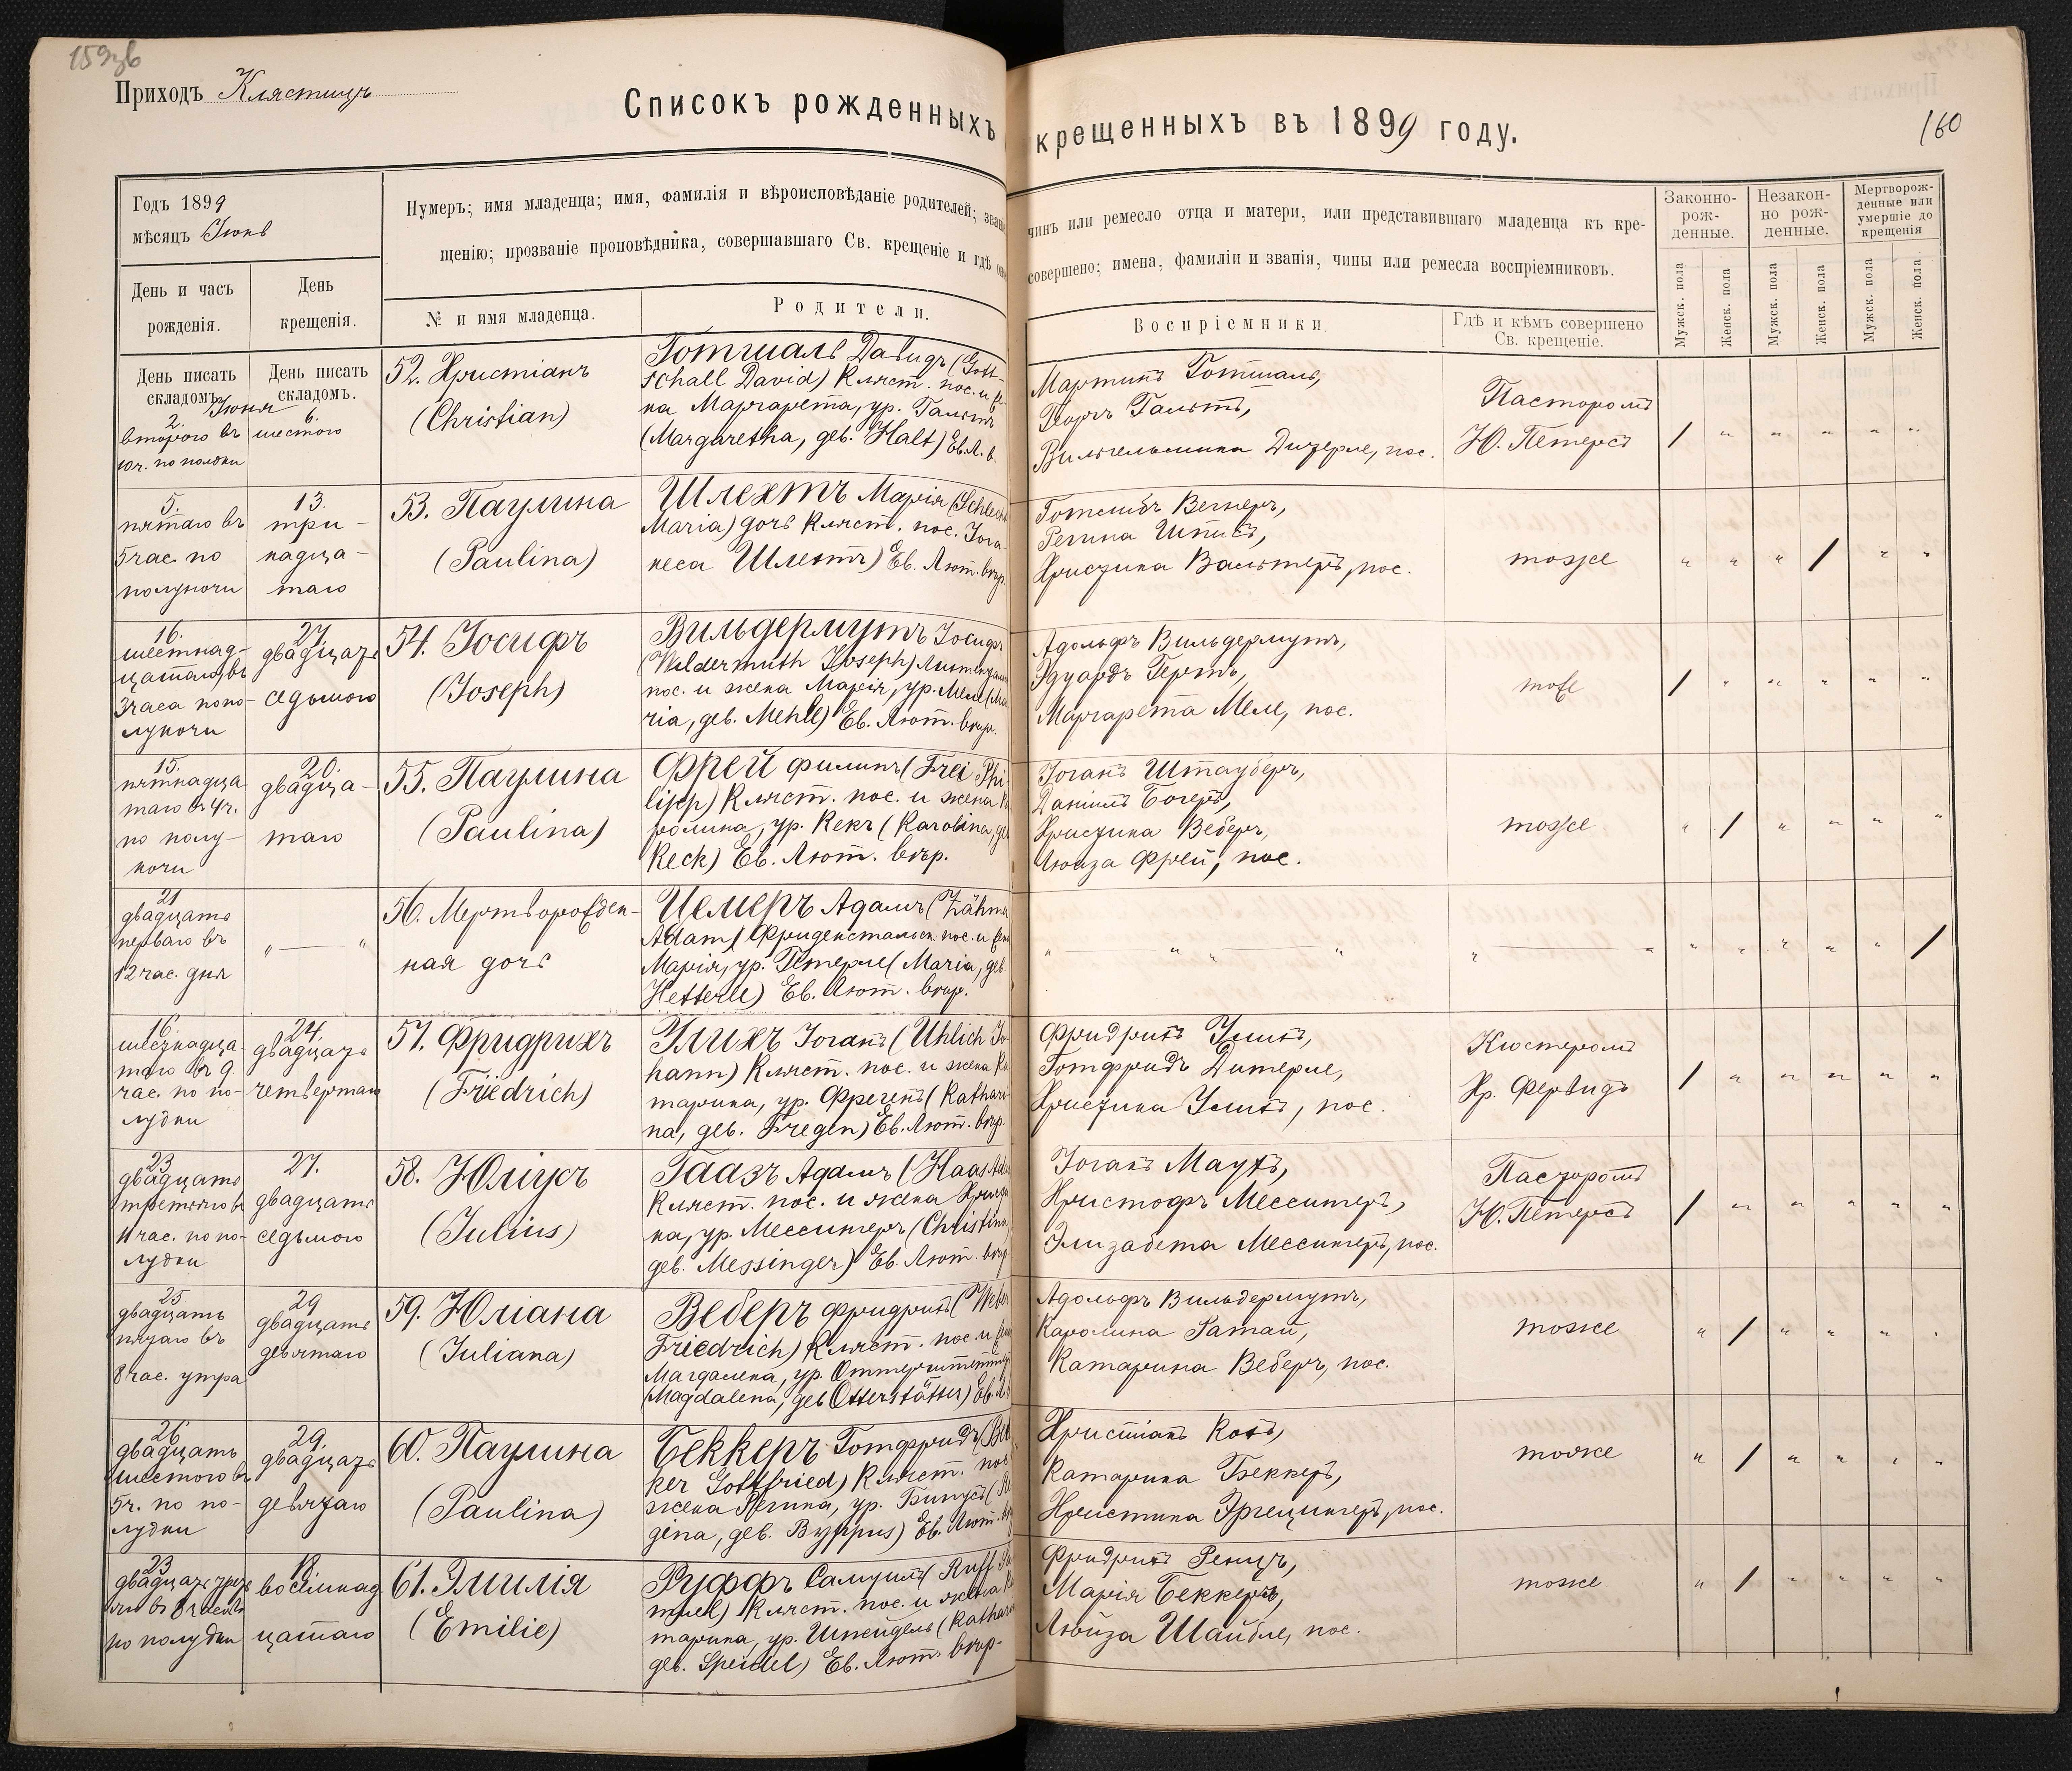 159об
Приходъ Клястицъ
Списокъ рожденныхъ
крещенныхъ въ 1899 году.
160
Годъ 1899
мѣсяцъ Іюнь
Нумеръ; имя младенца; имя, фамилія и вѣроисповѣданіе родителей;
чинъ или ремесло отца и матери, или представившаго младенца къ кре-
щенію; прозваніе проповѣдника, совершавшаго Св. крещеніе и гдѣ
совершено; имена, фамиліи и званія, чины или ремесла воспріемниковъ.
Законно-
рож-
денные.
Незакон-
но рож-
денные.
Мертворож-
денные или
умершіе до
крещенія
День и часъ
рожденія.
День
крещенія.
№ и имя младенца.
Родители.
Воспріемники
Гдѣ и кѣмъ совершено
Св. крещеніе.
Мужск. пола
Женск. пола
Мужск. пола
Женск. пола
Мужск. пола
Женск. пола
День писать
складомъ.
День писать
складомъ.
Іюня
2.
второго въ
10ч. по полдни
6.
шестого
52. Христіанъ
(Christian)
Готшаль Давидъ (Gott-
schall David) Кляст. пос. и
на Маргарета, ур. Гальтъ
(Margaretha, geb. Halt) Ев. Л. в.
Мартинъ Готшаль,
Георгъ Гальтъ,
Вильгельмина Дизерле, пос.
Пасторомъ
Ю. Петерсъ
5.
пятаго въ
5 час. по
полуночи
13.
три-
надца-
таго
53. Паулина
(Paulina)
Шлехтъ Марія (Schlech
Maria) дочь Кляст. пос. Іога
неса Шлехтъ) Ев. Лют. вѣр.
Готлибъ Вагнеръ,
Регина Шписъ,
Христина Вальтеръ, пос.
тоже
16.
шестнад-
цатаго въ
3 часа попо-
луночи
27.
двадцать
седьмого
54. Іосифъ
(Joseph)
Вильдермутъ Іосифъ
(Wildermuth Joseph)
пос. и жена Марія, ур. Меле (Ma
ria, geb. Mehle) Ев. Лют. вѣр.
Адольфъ Вильдермутъ,
Эдуардъ Гертъ,
Маргарета Меле, пос.
тоже
15.
пятнадца
таго въ 4ч.
по полу-
ночи
20.
двадца-
таго
55. Паулина
(Paulina)
Фрей Филипъ (Frei Phi
lipp) Кляст. пос. и жена Ка
ролина, ур. Кекъ (Karolina, ge
Keck) Ев. Лют. вѣр.
Іоганъ Штауберъ,
Даніилъ Богеръ,
Христина Веберъ,
Люиза Фрей, пос.
тоже
21
двадцать
перваго въ
12 час. дня
56. Мертворожден-
ная дочь
Цемеръ Адамъ (Zähme
Adam) Фриденстальск. пос. и жен
Марія, ур. Гетерле (Maria, geb.
Hetterle) Ев. Лют. вѣр.
16.
шестнадца-
таго въ 9
час. по по-
лудни
24.
двадцать
четвертаго
57. Фридрихъ
(Friedrich)
Улихъ Іоганъ (Uhlich Jo-
hann) Кляст. пос. и жена Ка
тарина, ур. Фрегенъ (Kathari
na, geb. Fregen) Ев. Лют. вѣр.
Фридрихъ Улихъ,
Готфридъ Дитерле,
Христина Улихъ, пос.
Кюстеромъ
Хр. Фервидъ
23
двадцать
третьяго въ
11 час. по по-
лудни
27.
двадцать
седьмого
58. Юліусъ
(Julius)
Гаазъ Адамъ (Haas Ada
Кляст. пос. и жена Христи
на, ур. Мессингеръ (Christina,
geb. Messinger) Ев. Лют. вѣр.
Іоганъ Маутъ,
Христофъ Мессингеръ,
Элизабета Мессингеръ, пос.
Пасторомъ
Ю. Петерсъ
25
двадцать
пятаго въ
8 час. утра
29
двадцать
девятаго
59. Юліана
(Juliana)
Веберъ Фридрихъ (Weber
Friedrich) Кляст. пос. и жен
Магдалена, ур.
(Magdalena, geb Otterstätter) Ев. Л.
Адольфъ Вильдермутъ,
Каролина Ратай,
Катарина Веберъ, пос.
тоже
26
двадцать
шестого въ
5ч. по по-
лудни
29.
двадцать
девятаго
60. Паулина
(Paulina)
Беккеръ Готфридъ (Bek
ker Gottfried) Кляст. пос
жена Регина, ур. Бипусъ (Re
gina, geb. Byppus) Ев. Лют. вѣ
Христіанъ Котъ,
Катарина Беккеръ,
Христина Эргецингеръ, пос.
тоже
23
двадцать треть
яго въ 8 часовъ
по полудни
18.
восемнад
цатаго
61. Эмилія
(Emilie)
Руффъ Самуилъ (Ruff Sa
muel) Кляст. пос. и жена Ка
тарина, ур. Шпейдель (Kathari
geb. Speidel) Ев. Лют. вѣр.
Фридрихъ Ренцъ,
Марія Беккеръ,
Люиза Шайбле, пос.
тоже